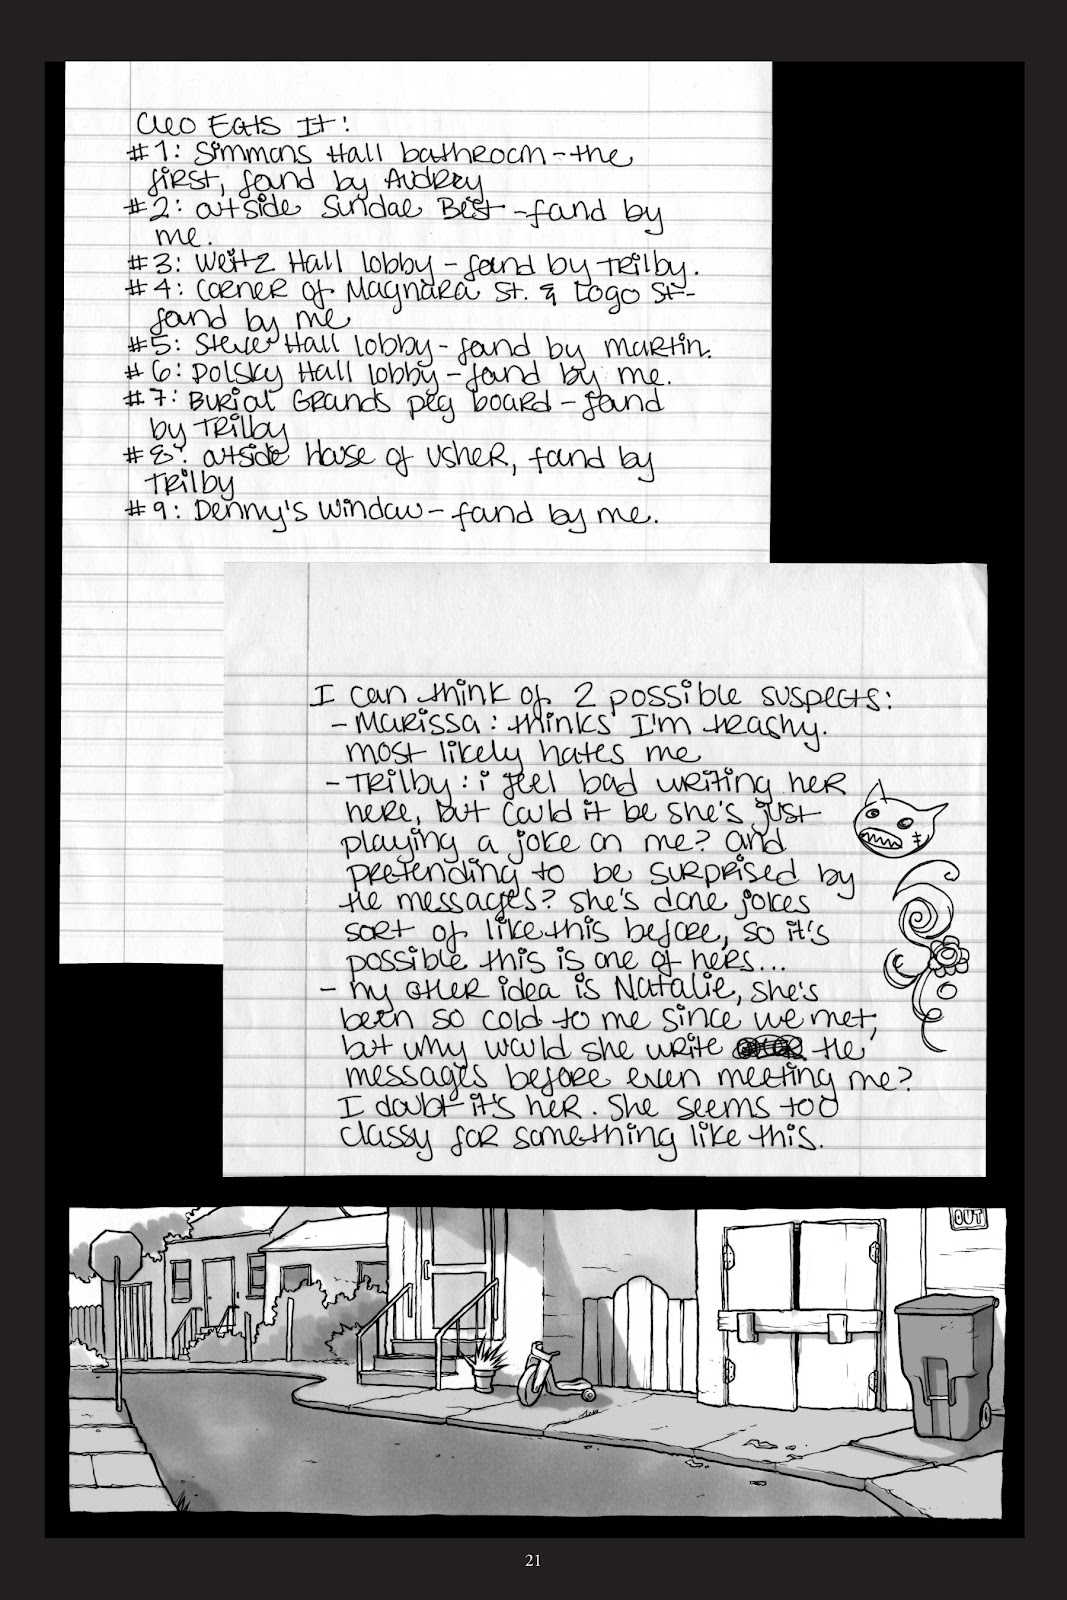 Cleo Eats It:
#1: Simmons Hall bathroom - the
first, found by Audrey
#2: outside Sundae Best - found by
me.
#3: Weitz Hall lobby - found by Trilby.
#4: Corner of Magnara St. & Logo St-
found by me
#5: Steve Hall lobby - found by Martin.
#6: Polsky Hall lobby - found by me.
#7: Burial Grounds peg board - found
by Trilby
#8: outside House of Usher, found by
Trilby
#9: Denny's window - found by me.
I can think of 2 possible suspects:
- Marissa: thinks I'm trashy.
most likely hates me
- Trilby: i feel bad writing her
here, but could it be she's just
playing a joke on me? and
pretending to be surprised by
the messages? she's done jokes
sort of like this before, so it's
possible this is one of hers...
- my other idea is Natalie, she's
been so cold to me since we met,
but why would she write the
messages before even meeting me?
I doubt it's her. She seems too
classy for something like this.
OUT
21